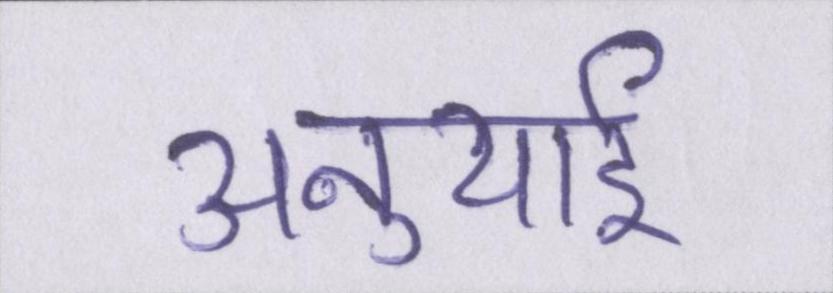 अनुयाई